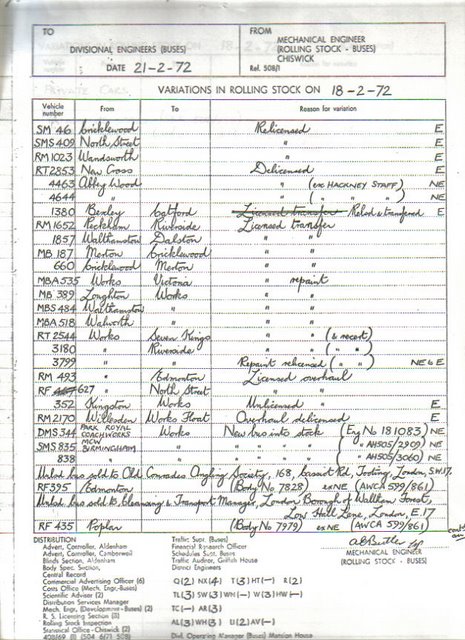 TO
DIVISIONAL ENGINEERS (BUSES)
DATE 21-2-72
FROM
MECHANICAL ENGINEER
(ROLLING STOCK - BUSES)
CHISWICK
Ref. 508/1
VARIATIONS IN ROLLING STOCK ON 18-2-72
Vehicle number From To Reason for variation
SM 46 Cricklewood Relicensed E
SMS 409 North Street " E
RM 1023 Wandsworth " E
RT 2853 New Cross Delicensed E
4463 Abbey Wood " (ex HACKNEY STAFF) NE
4644 " " ( " " ) NE
1380 Bexley Catford Licensed transfer Relcd & transferred E
RM 1652 Peckham Riverside Licensed transfer
1857 Walthamstow Dalston " "
MB 187 Merton Cricklewood " "
660 Cricklewood Merton " "
MBA 535 Works Victoria " repaint
MB 389 Loughton Works " "
MBS 484 Walthamstow " " "
MBA 518 Walworth " " "
RT 2544 Works Seven Kings " " (& recert)
3180 " Riverside " " ( " " )
3799 " Repaint relicensed ( " " ) NE to E
RM 493 " Edmonton Licensed overhaul
RF 627 " North Street " "
352 Kingston Works Unlicensed " E
RM 2170 Willesden Works Float Overhaul delicensed E
DMS 344 PARK ROYAL COACHWORKS Works New bus into stock (Eng No 181083) NE
SMS 835 MCW BIRMINGHAM " " " " " ( " AH505/2909) NE
838 " " " " " " ( " AH505/3060) NE
Unlicd bus sold to Old Comrades Angling Society, 168, Gassiot Rd, Tooting, London, S.W.17.
RF 395 Edmonton (Body No 7828) ex NE (AWCA 599/861)
Unlicd bus sold to Cleansing & Transport Manager, London Borough of Waltham Forest,
Low Hall Lane, London, E.17
RF 435 Poplar (Body No 7979) ex NE (AWCA 599/861)
DISTRIBUTION
Advert. Controller, Aldenham
Advert. Controller, Camberwell
Blinds Section, Aldenham
Body Spec. Section
Central Record
Commercial Advertising Officer (6)
Costs Office (Mech. Engr.-Buses)
Scientific Adviser (2)
Distribution Services Manager
Mech. Engr. (Development - Buses) (2)
R. S. Licensing Section (3)
Rolling Stock Inspection
Statistical Office - Chiswick (2)
Traffic Supt. (Buses)
Financial Research Officer
Schedules Supt. Buses
Traffic Auditor, Griffith House
District Engineers
Q(2) NX(4) T(3) HT(-) R(2)
TL(3) SW(3) WN(-) W(3) HW(-)
TC(-) AR(3)
AL(3) WH(3) U(2) AV(-)
Divl. Operating Manager (Buses) Mansion House
MECHANICAL ENGINEER
(ROLLING STOCK - BUSES)